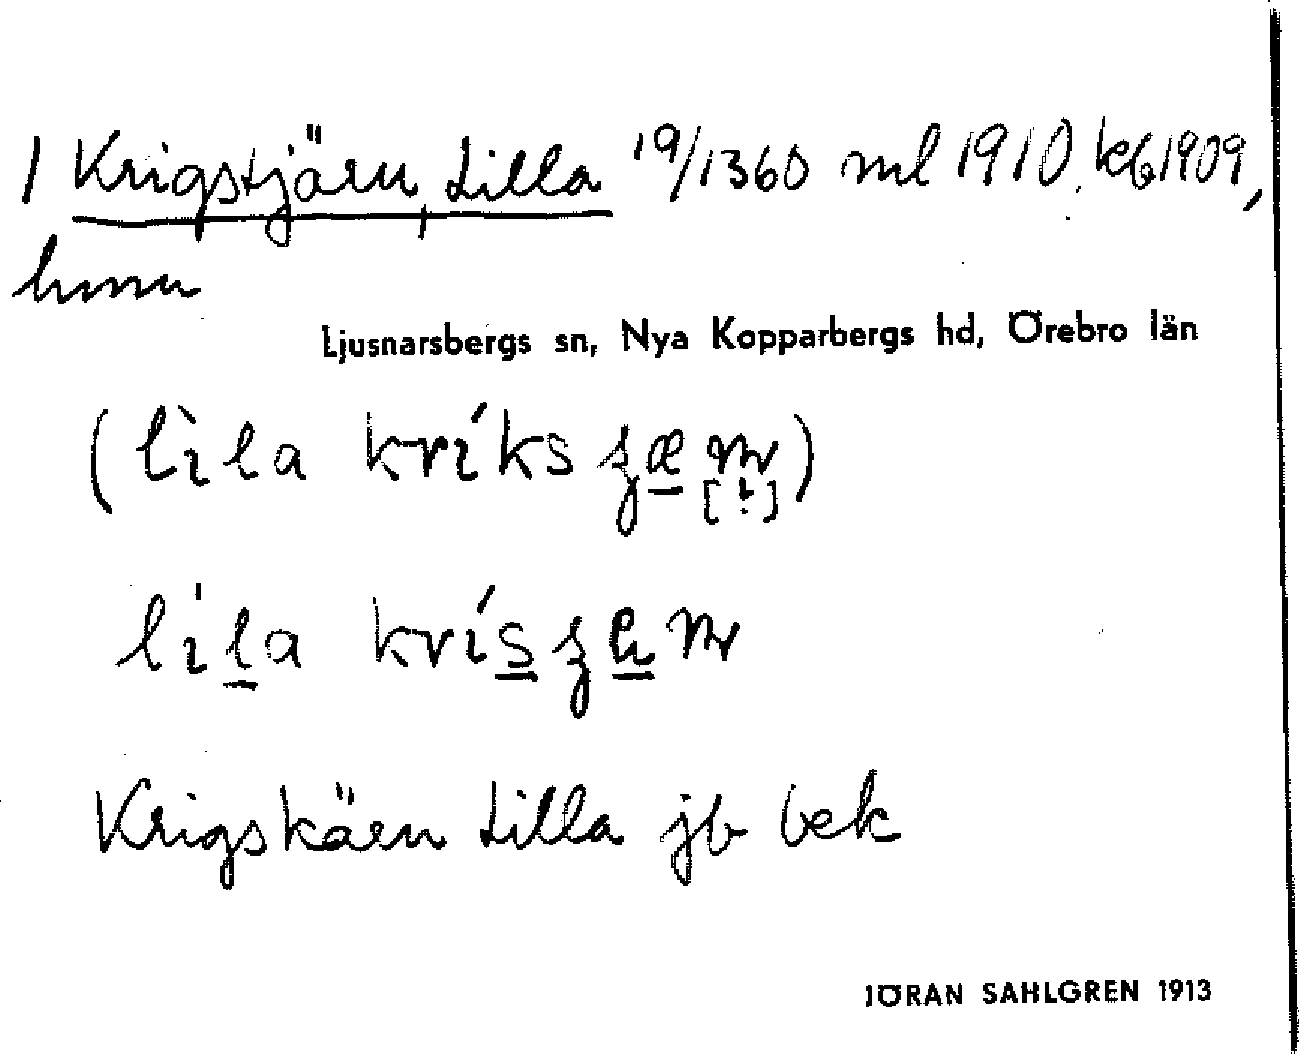 1 Krigstjärn, Lilla 19/1360 ml 1910. kb 1909,
hmn
Ljusnarsbergs sn, Nya Kopparbergs hd, Örebro län
(lìla kríks
[!]
lila krís
Krigskären Lilla jb bek
JÖRAN SAHLGREN 1913